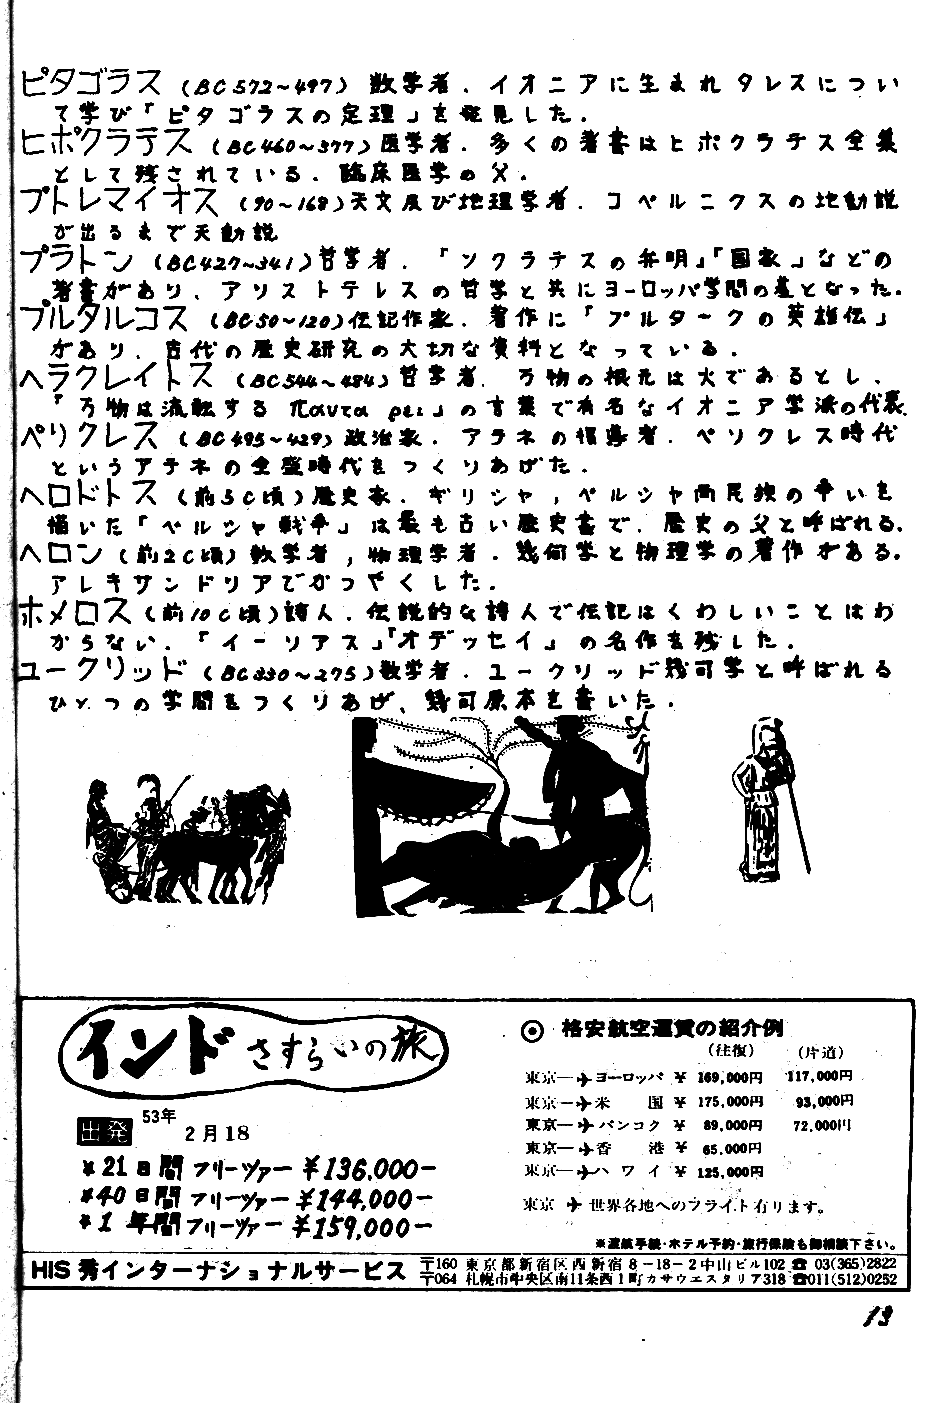 ピタゴラス (BC572~497) 数学者．イオニアに生まれタレスについ
て学び「ピタゴラスの定理」を発見した．
ヒポクラテス (BC460~377) 医学者．多くの著書はヒポクラテス全集
として残されている．臨床医学の父．
プトレマイオス (90~168) 天文及び地理学者．コペルニクスの地動説
が出るまで天動説
プラトン (BC427~341) 哲学者．「ソクラテスの弁明」「国家」などの
著書があり、アリストテレスの哲学と共にヨーロッパ学問の基となった．
プルタルコス (BC50~120) 伝記作家．著作に「プルタークの英雄伝」
があり、古代の歴史研究の大切な資料となっている．
ヘラクレイトス (BC544~484) 哲学者．万物の根元は火であるとし、
「万物は流転する παντα ρει」の言葉で有名なイオニア学派の代表．
ペリクレス (BC495~429) 政治家．アテネの指導者．ペリクレス時代
というアテネの全盛時代をつくりあげた．
ヘロドトス (前5C頃) 歴史家．ギリシャ，ペルシャ両民族の争いを
描いた「ペルシャ戦争」は最も古い歴史書で、歴史の父と呼ばれる．
ヘロン (前2C頃) 数学者，物理学者．幾何学と物理学の著作がある．
アレキサンドリアでかつやくした．
ホメロス (前10C頃) 詩人．伝説的な詩人で伝記はくわしいことはわ
からない．「イーリアス」「オデッセイ」の名作を残した．
ユークリッド (BC330~275) 数学者．ユークリッド幾可学と呼ばれる
ひとつの学問をつくりあげ、幾可原本を書いた．
インド さすらいの旅
出発 53年
2月18
*21日間 フリーツァー ¥136,000−
*40日間 フリーツァー ¥144,000−
*1年間 フリーツァー ¥159,000−
◉ 格安航空運賃の紹介例
(往復) (片道)
東京—✈ヨーロッパ ¥ 169,000円 117,000円
東京—✈米国 ¥ 175,000円 93,000円
東京—✈バンコク ¥ 89,000円 72,000円
東京—✈香港 ¥ 65,000円
東京—✈ハワイ ¥ 125,000円
東京 ✈ 世界各地へのフライト有ります。
※渡航手続・ホテル予約・旅行保険も御相談下さい。
HIS 秀インターナショナルサービス
〒160 東京都新宿区西新宿8−18−2中山ビル102 ☎ 03(365)2822
〒064 札幌市中央区南11条西1町カサウエスタリア318 ☎011(512)0252
13